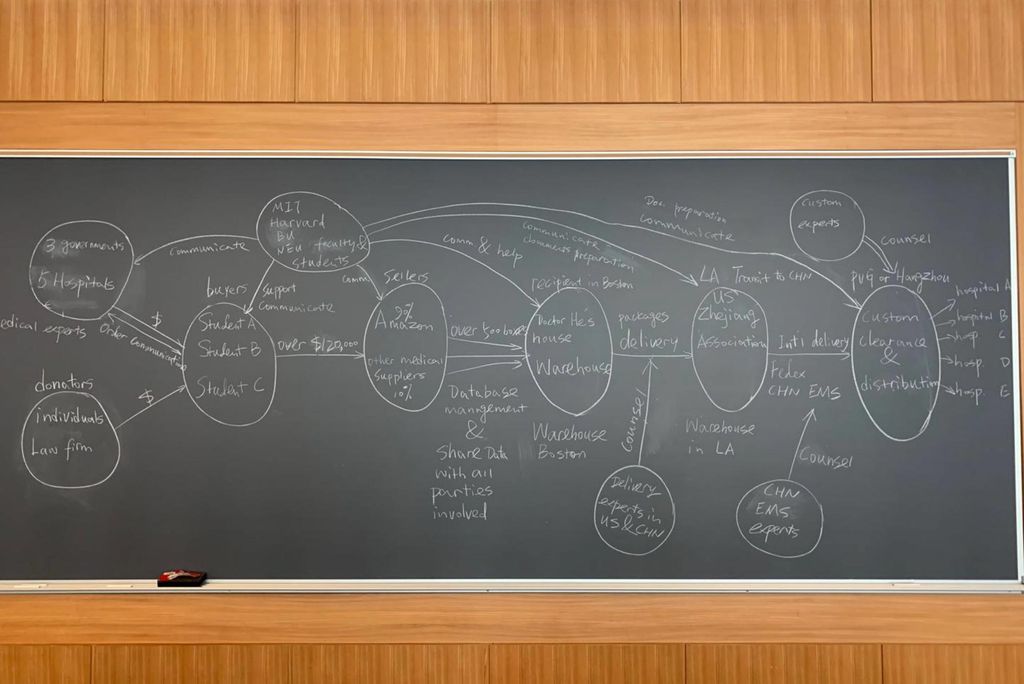 3 governments
5 Hospitals
medical experts
donators
individuals
Law firm
$
Order Communication
$
communicate
MIT
Harvard
BU
NEU faculty &
students
support
communicate
buyers
Student A
Student B
Student C
over $120,000
comm
Sellers
90%
Amazon
other medical
suppliers
10%
comm & help
over 500 boxes
Database
mangement
&
share Data
with all
parties
involved
recipient in Boston
Doctor He's
house
Warehouse
Warehouse
Boston
packages
delivery
Counsel
Delivery
experts in
US & CHN
communicate
documents preparation
Doc preparation
communicate
LA Transit to CHN
US
Zhejiang
Association
Warehouse
in LA
Int'l delivery
Fedex
CHN EMS
Counsel
CHN
EMS
experts
custom
experts
counsel
PVG or Hangzhou
Custom
clearance
&
distribution
hospital A
hospital B
hosp C
hosp. D
hosp. E